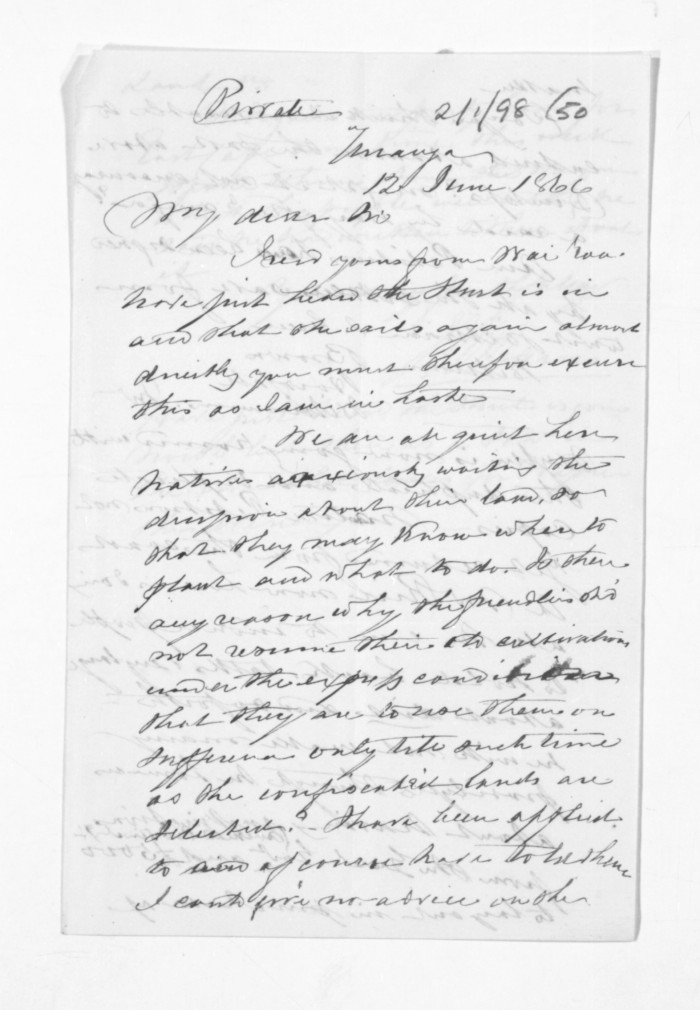 Private 2/1/98 (50
Turanga
12 June 1866
My dear Sir
I recd yours from Wai'roa
have just heard the Sturt is in
and that she sails again almost
directly you must therefore excuse
this as I am in haste
We are all quiet here
natives anxiously waiting the
decision about their land, so
that they may know when to
plant and what to do. Is there
any reason why the friendlies sh'd
not resume their old cultivations
under the express conditions
that they are to use them on
sufferance only till such time
as the confiscated lands are
selected? I have been applied
to and of course have told them
I could give no advice on the